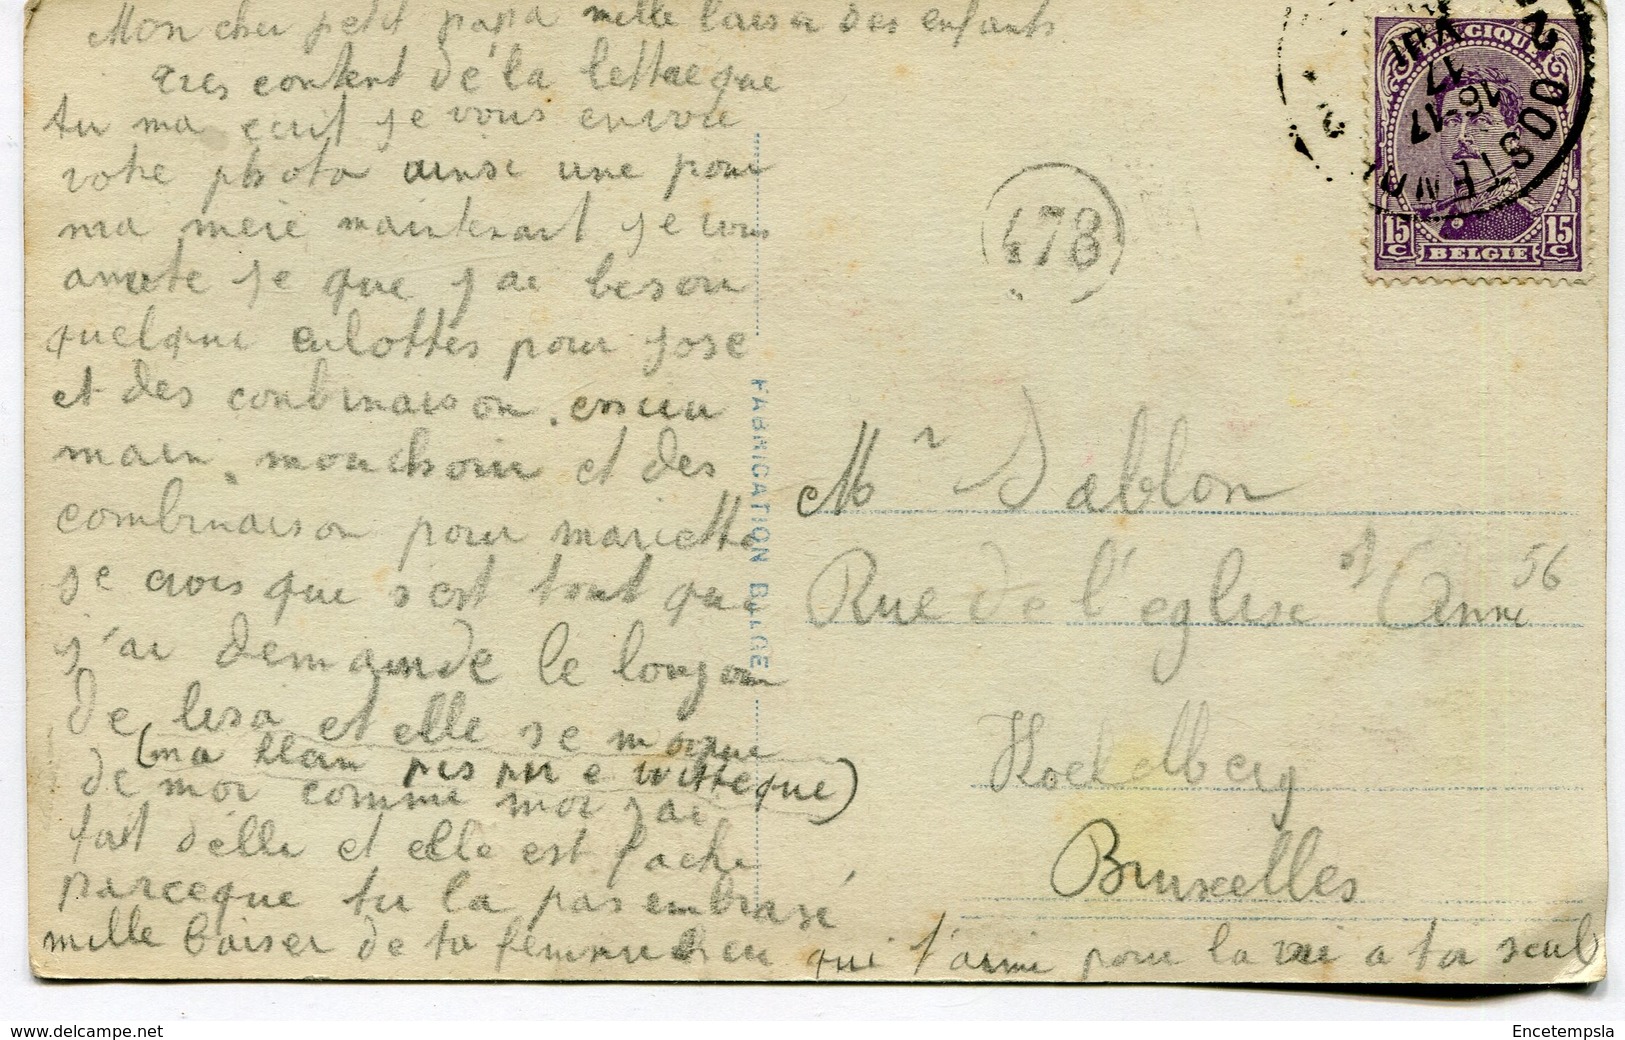 Mon cher petit papa mille baiser des enfants
tres content de la lettre que
tu ma ecrit je vous envoie
votre photo ainsi une pour
ma mere maintenant je vous
je que j ai besoin
quelque culottes pour jose
et des conbinaison. essuiu
main. mouchoir et des
combinaison pour marietta
je crois que s'est tout que
j'ai demande le
De lisa et elle se moque
(ma
De moi comme moi j ai
fait d'elle et elle est fache
parceque tu la pas embrasé
mille baiser de ta femme qui t'aime pour la vie a toi seul
FABRICATION BELGE
478
BELGIQUE
15 C
15 C
BELGIE
OOSTEN
16-17
17
VIII
Mr Sablon
Rue de l'eglise St Anne 56
Koekelberg
Bruxelles
www.delcampe.net
Encetempsla